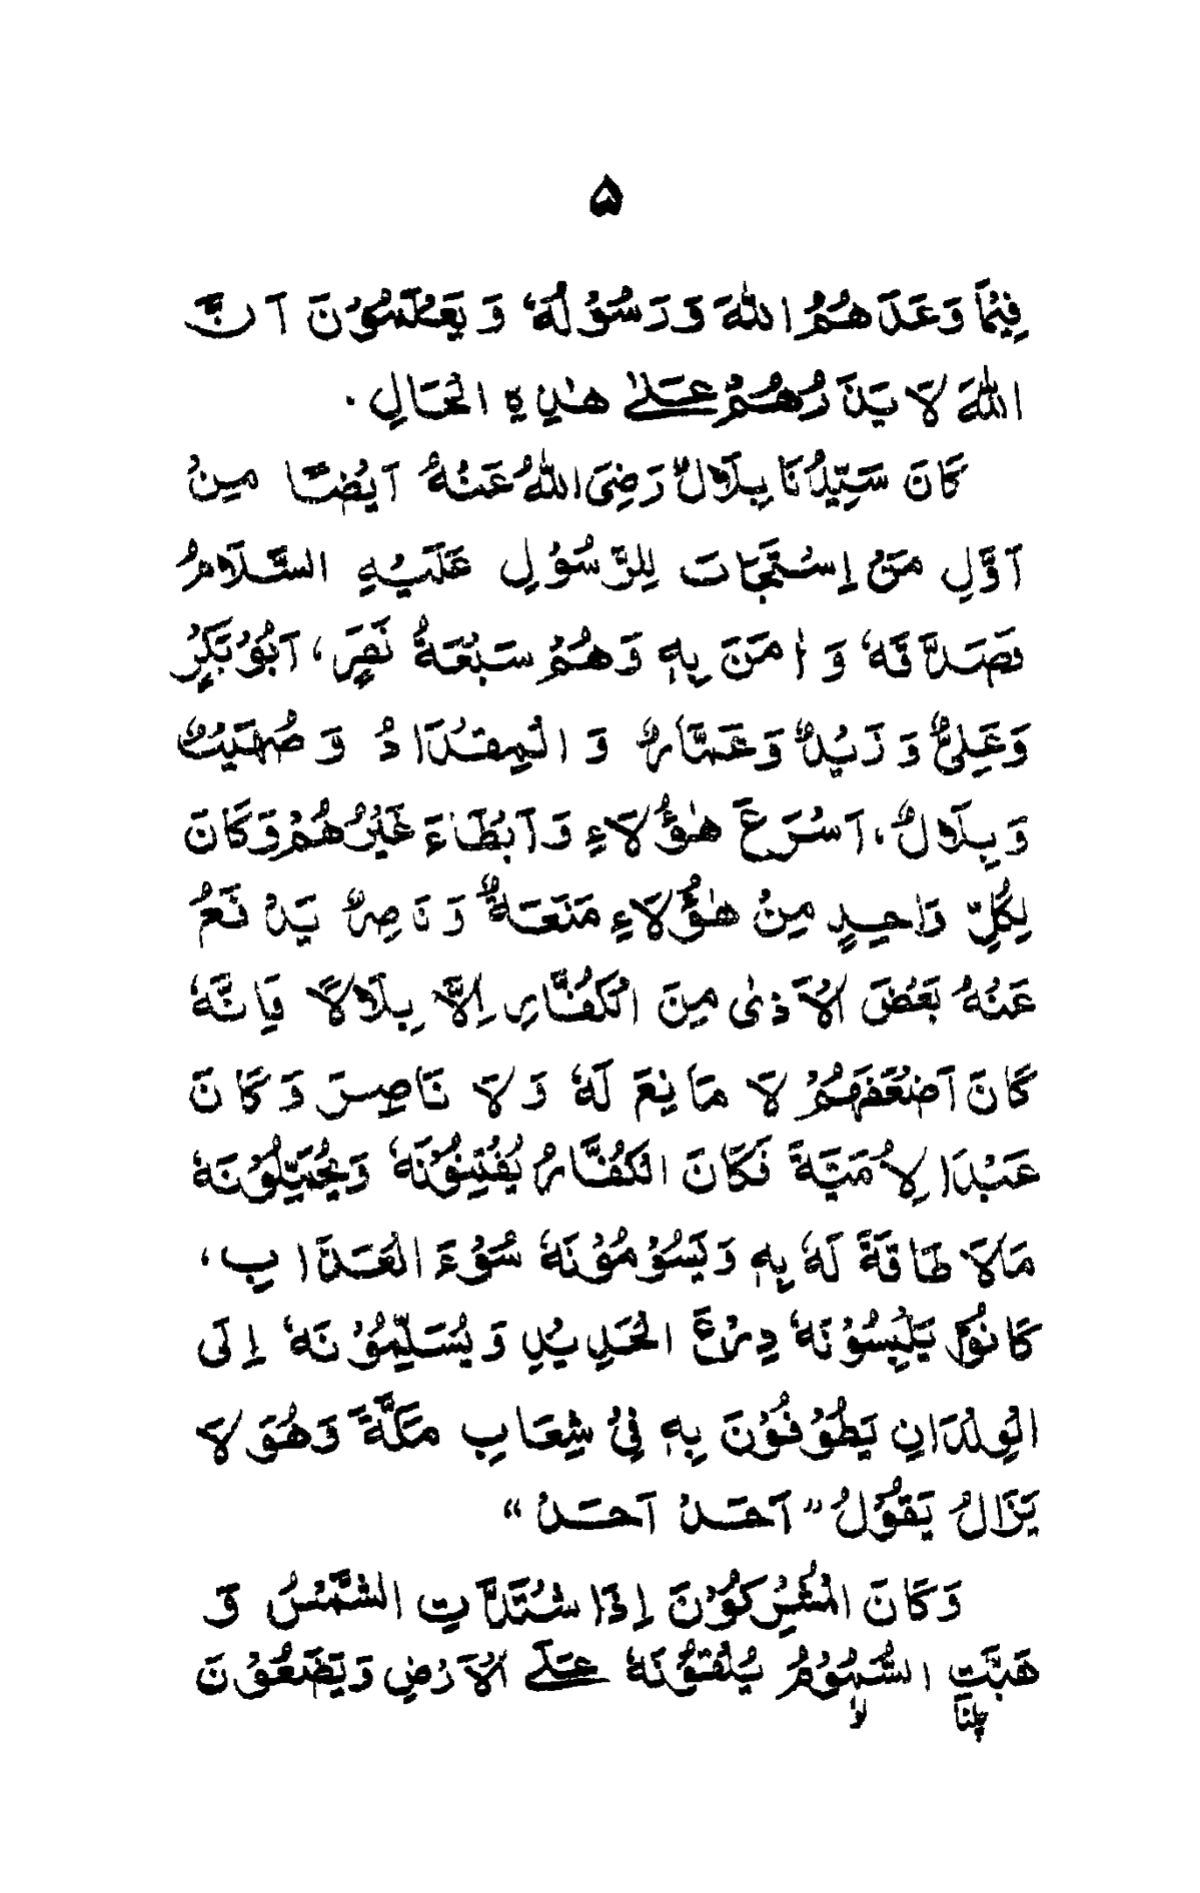 ۵
فِيْمَا وَعَدَهُمُ اللهَ وَرَسُوْلُهٗ وَيَعْلَمُوْنَ اَنَّ
اللهَ لَا يَذَرُهُمْ عَلٰى هٰذِهِ الْحَالِ .
كَانَ سَيِّدُنَا بِلَالٌ رَضِيَ اللهُ عَنْهُ اَيْضًا مِنْ
اَوَّلِ مَنْ اِسْتَجَابَ لِلرَّسُوْلِ عَلَيْهِ السَّلَامُ
فَصَدَّقَهٗ وَ اٰمَنَ بِهٖ وَهُمْ سَبْعَةُ نَفَرٍ، اَبُوْبَكْرٍ
وَعَلِيٌّ وَ زَيْدٌ وَعَمَّارٌ وَ الْمِقْدَادُ وَ صُهَيْبٌ
وَبِلَالٌ، اَسْرَعَ هٰؤُلَاءِ وَ اَبْطَاءَ غَيْرُهُمْ وَكَانَ
لِكُلِّ وَاحِدٍ مِنْ هٰؤُلَاءِ مَنَعَةٌ وَ نَاصِرٌ يَدْفَعُ
عَنْهُ بَعْضَ الْاَذٰى مِنَ الْكُفَّارِ اِلَّا بِلَالًا فَاِنَّهٗ
كَانَ اَضْعَفَهُمْ لَا مَانِعَ لَهٗ وَلَا نَاصِرَ وَكَانَ
عَبْدًا لِاُمَيَّةَ فَكَانَ الْكُفَّارُ يُفْتِنُوْنَهٗ وَيُحَمِّلُوْنَهٗ
مَالَا طَاقَةَ لَهٗ بِهٖ وَيَسُوْمُوْنَهٗ سُوْءَ الْعَذَابِ،
كَانُوْا يَلْبِسُوْنَهٗ دِرْعَ الْحَدِيْدِ وَيُسَلِّمُوْنَهٗ اِلَى
الْوِلْدَانِ يَطُوْفُوْنَ بِهٖ فِيْ شِعَابِ مَكَّةَ وَهُوَ لَا
يَزَالُ يَقُوْلُ ”اَحَدٌ اَحَدٌ“
وَكَانَ الْمُشْرِكُوْنَ اِذَا شْتَدَّتِ الشَّمْسُ وَ
هَبَّتِ السَّمُوْمُ يُلْقُوْنَهٗ عَلَى الْاَرْضِ وَيَضَعُوْنَ
چلنا لو